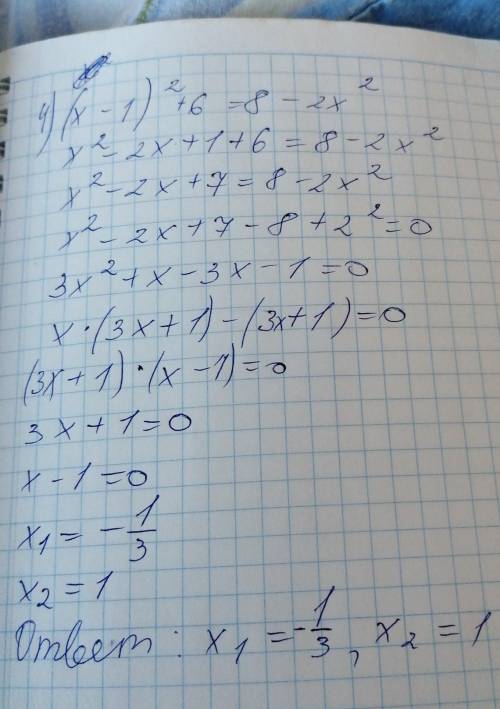 4) (x - 1)² + 6 = 8 - 2x²
x² - 2x + 1 + 6 = 8 - 2x²
x² - 2x + 7 = 8 - 2x²
x² - 2x + 7 - 8 + 2² = 0
3x² + x - 3x - 1 = 0
x · (3x + 1) - (3x + 1) = 0
(3x + 1) · (x - 1) = 0
3x + 1 = 0
x - 1 = 0
x₁ = - 1/3
x₂ = 1
Ответ: x₁ = - 1/3, x₂ = 1